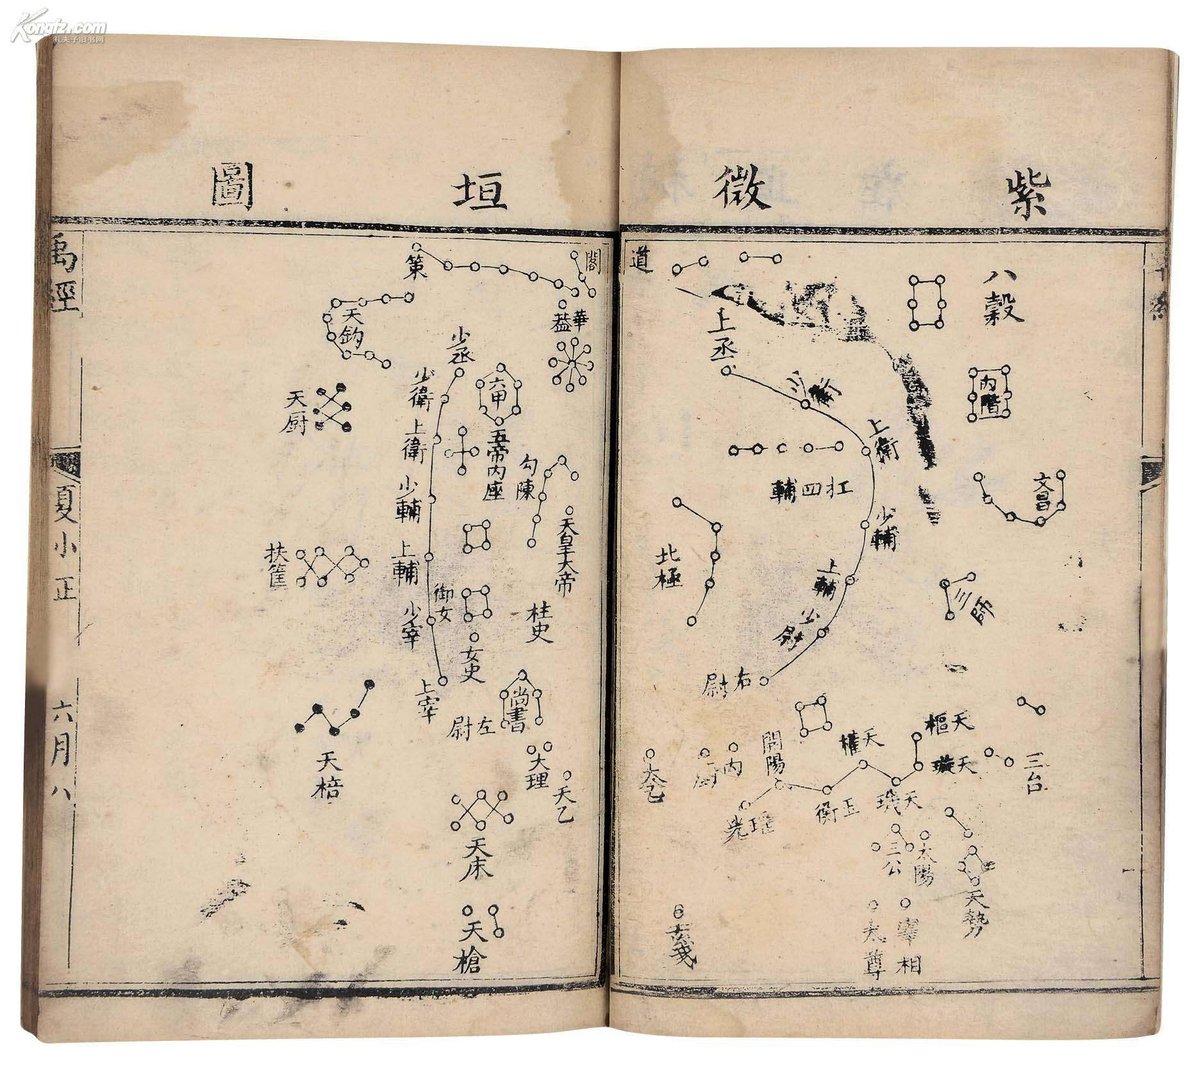 Kongfz.com
孔夫子旧书网
紫微垣圖
八穀
道
上丞
少衛
内階
上衛
四輔
杠
文昌
少輔
北極
上輔
三師
少尉
右尉
天樞
天璇
天權
開陽
三台
内厨
太乙
天璣
玉衡
瑤光
三公
太陽
天勢
宰相
太尊
玄戈
閣
策
華蓋
天鈎
少丞
六甲
少衛
天厨
上衛
五帝内座
勾陳
少輔
天皇大帝
扶筐
上輔
御女
柱史
少宰
女史
上宰
尚書
左尉
大理
天棓
天乙
天床
天槍
禹經
夏小正
六月八